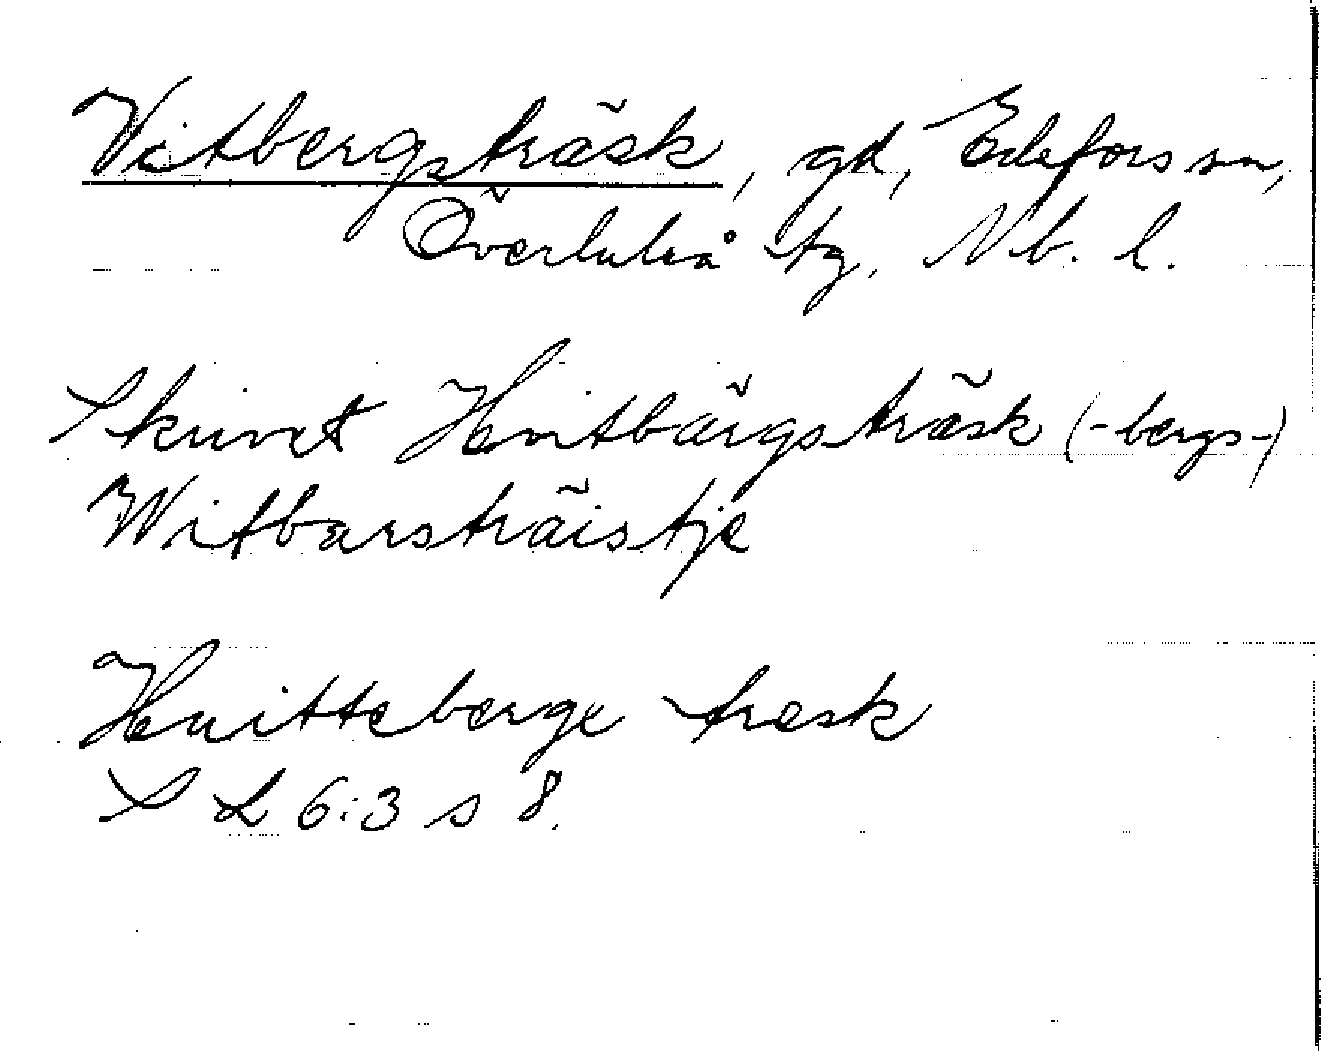 Vitbergsträsk, gd, Edefors sn,
Överluleå tg, Nb. l.
Skrivet Hvitbärgsträsk (-bergs-)
Witbarsträistje
Huitteberge tresk
S L 6:3 s 8.